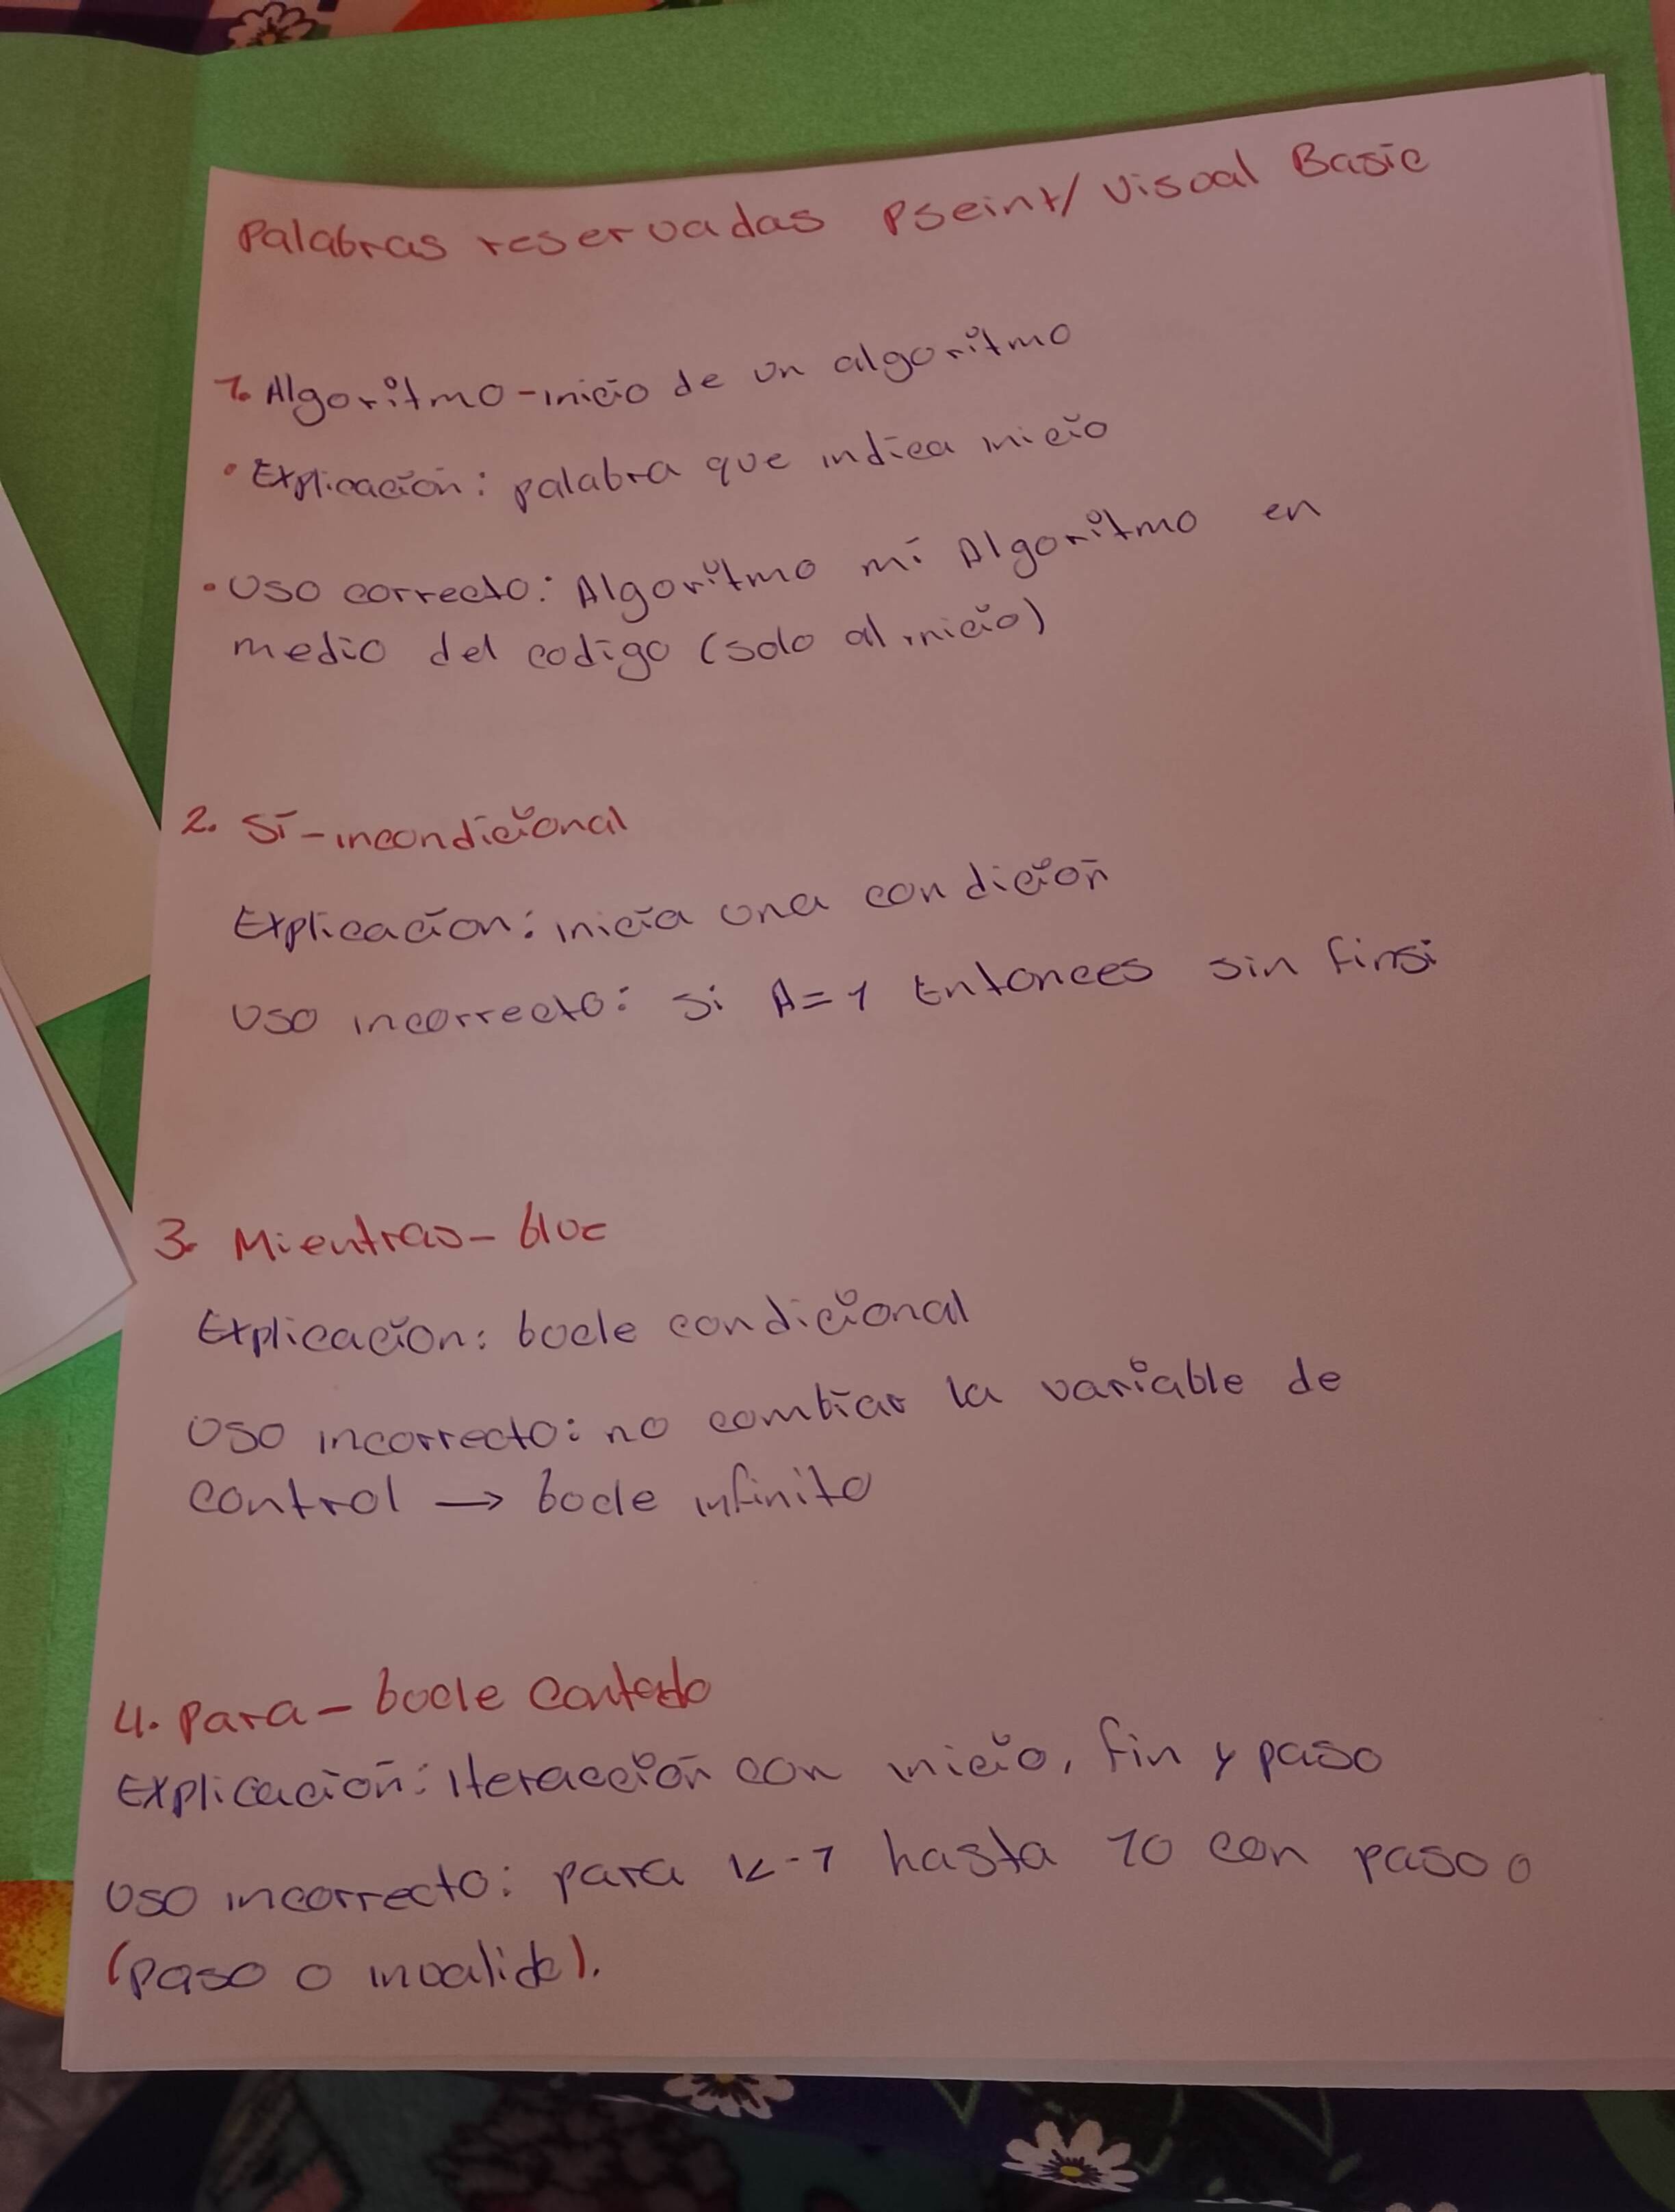 Palabras reservadas Pseint/ Visual Basic
1. Algoritmo - inicio de un algoritmo
• Explicación: palabra que indica inicio
• Uso correcto: Algoritmo mi Algoritmo en
medio del codigo (solo al inicio)
2. Si - incondicional
Explicación: inicia una condición
Uso incorrecto: si A=1 Entonces sin finsi
3. Mientras - bluc
Explicación: bocle condicional
Uso incorrecto: no cambiar la variable de
control → bocle infinito
4. Para - bocle Contado
Explicación: iteracción con inicio, fin y paso
Uso incorrecto: para k-1 hasta 10 con paso 0
(paso 0 invalido).